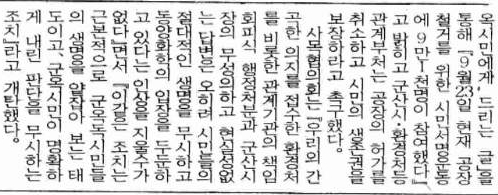 옥시민에게」드리는 글」을
통해 『9월 23일 현재 공장
철거를 위한 시민서명운동
에 9만 1천명이 참여했다』
고 밝히고 군산시·환경처등
관계부처는 공장의 허가를
취소하고 시민의 생존권을
보장하라고 촉구했다.
사목협의회는 『우리의 간
곡한 의지를 접수한 환경처
를 비롯한 관계기관의 책임
회피식 행정처분과 군산시
장의 무성의하고 현실성없
는 답변은 오히려 시민들의
절대적인 생명을 무시하고
동양화학의 입장을 두둔하
고 있다는 인상을 지울수가
없다』면서 『이같은 조치는
근본적으로 군옥시민들
의 생명을 얕잡아 보는 태
도이고, 군옥시민이 명확하
게 내린 판단을 무시하는
조치』라고 개탄했다.